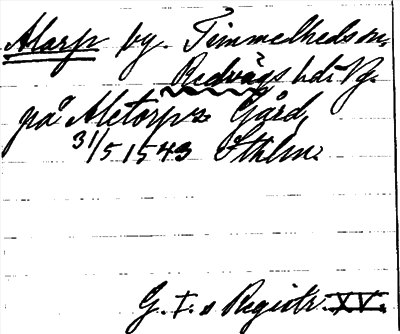 Alarp by. Timmelheds sn,
Redvägs hd. Vg.
på Aletorps Gård,
31/5 1543 Sthlm.
G. I. s Registr. XV.